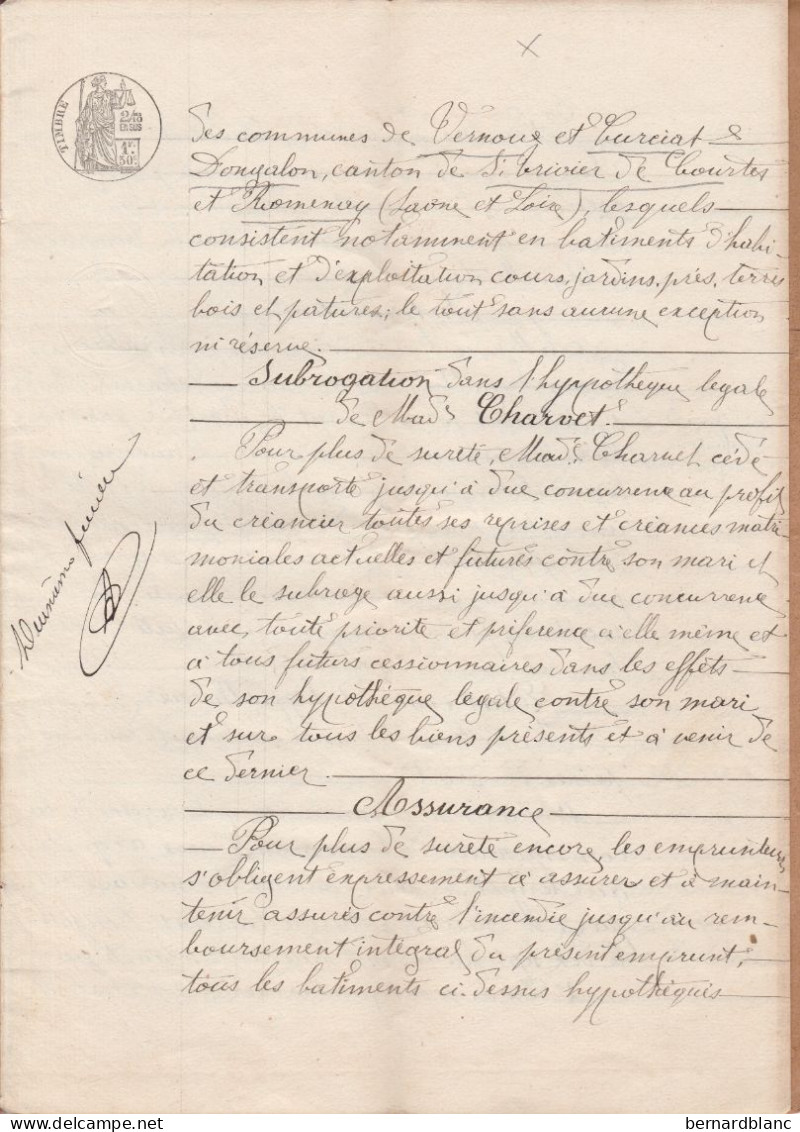 TIMBRE
2/10
EN SUS
1F
50c
des communes de Vernoux et Curciat &
Dongalon, canton de St trivier de Courtes
et Romenay (Saone et Loire), lesquels
consistent notamment en batiments d'habi-
tation et d'exploitation cours, jardins, prés, terres
bois et patures; le tout sans aucune exception
ni réserve.
Subrogation dans l'hypothèque legale
de Made Charvet.
Pour plus de sureté, Made Charvet céde
et transporte jusqu'à due concurrence au profit
du créancier toutes ses reprises et créances matri
moniales actuelles et futures contre son mari et
elle le subroge aussi jusqu'à due concurrence
avec toute priorite et préference à elle même et
à tous futurs cessionnaires dans les effets
de son hypothèque légale contre son mari
et sur tous les biens présents et à venir de
ce dernier.
Assurance
Pour plus de sureté encore, les emprunteurs
s'obligent expressement à assurer et à main-
tenir assurés contre l'incendie jusqu'au rem-
boursement intégral du présent emprunt,
tous les batiments ci-dessus hypothéqués
bernardblanc